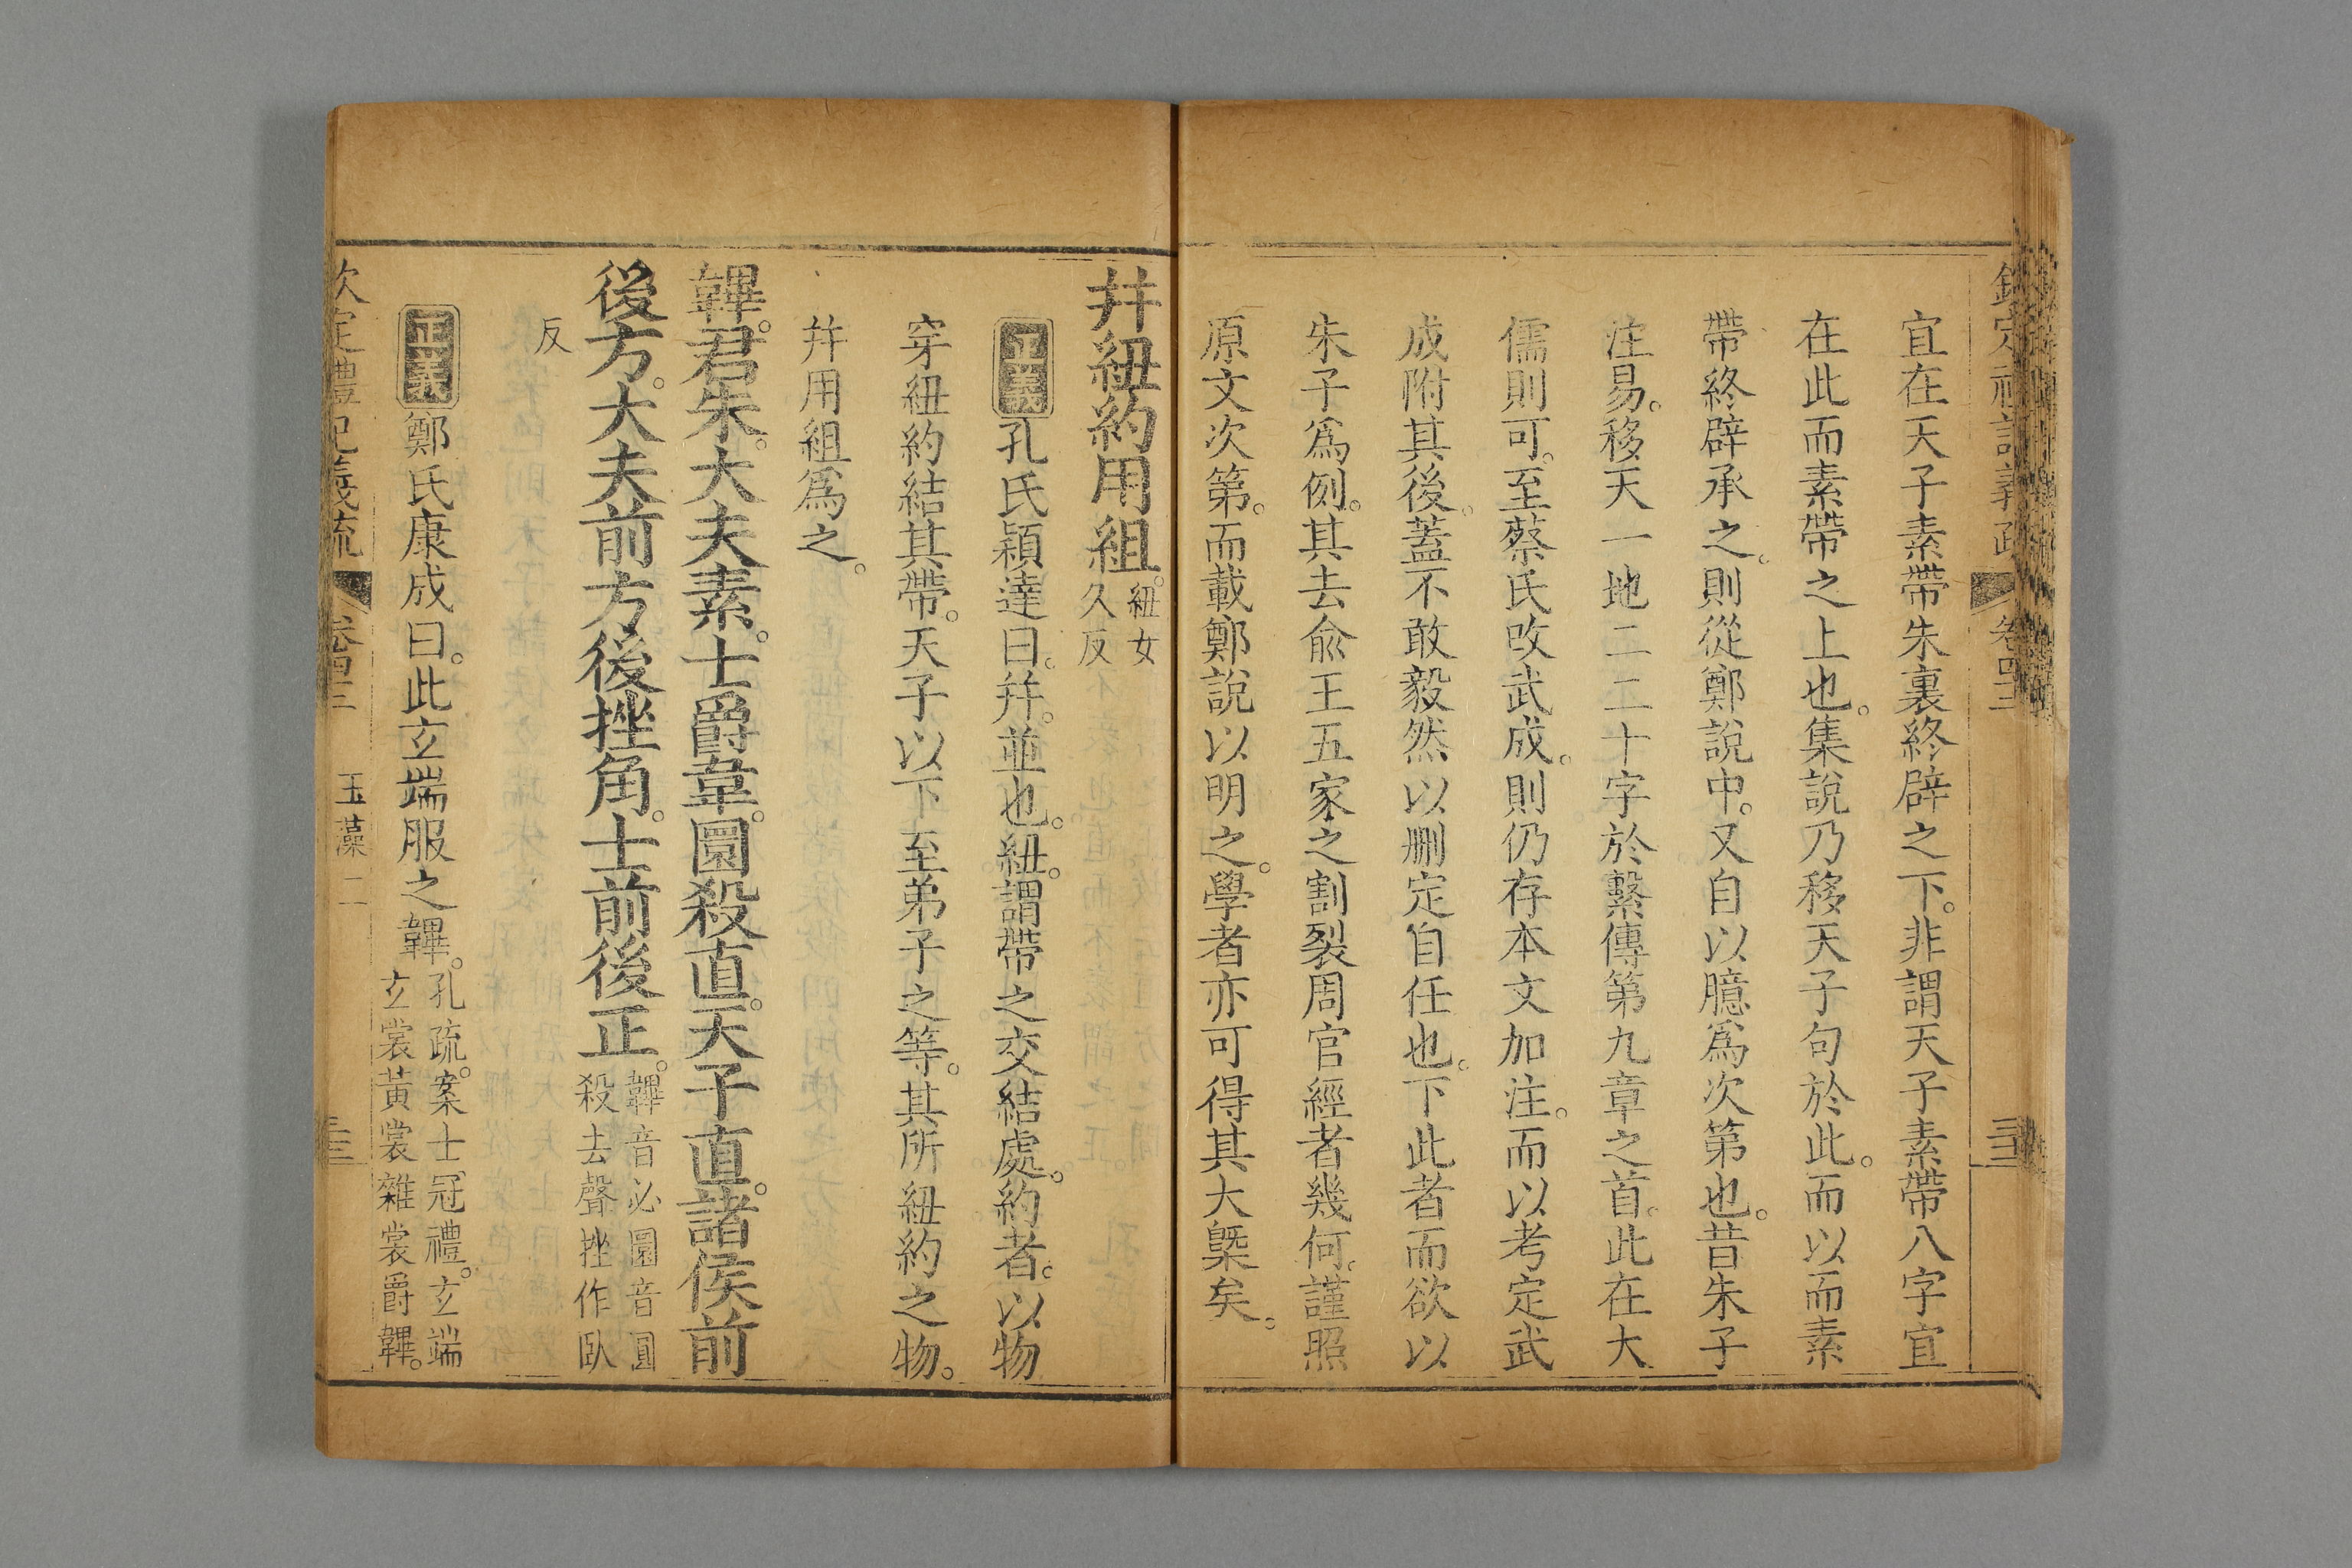 欽定禮記義疏 卷四三
宜在天子素帶朱裏終辟之下。非謂天子素帶八字宜
在此而素帶之上也。集說乃移天子句於此。而以而素
帶終辟承之。則從鄭說中。又自以臆爲次第也。昔朱子
注易。移天一地二二十字於繫傳第九章之首。此在大
儒則可。至蔡氏攺武成。則仍存本文加注。而以考定武
成附其後。蓋不敢毅然以刪定自任也。下此者而欲以
朱子爲例。其去俞王五家之割裂周官經者幾何。謹照
原文次第。而載鄭說以明之。學者亦可得其大槩矣。
幷紐約用組。紐女久反
正義孔氏穎達曰。幷。並也。紐。謂帶之交結處。約者。以物
穿紐約結其帶。天子以下至弟子之等。其所紐約之物。
幷用組爲之。
韠。君朱。大夫素。士爵韋。圜殺直。天子直。諸侯前
後方。大夫前方後挫角。士前後正。韠音必圜音圓殺去聲挫作臥
反
正義鄭氏康成曰。此玄端服之韠。孔疏。案士冠禮。玄端玄裳黃裳雜裳爵韠。
欽定禮記義疏 卷四三 玉藻二